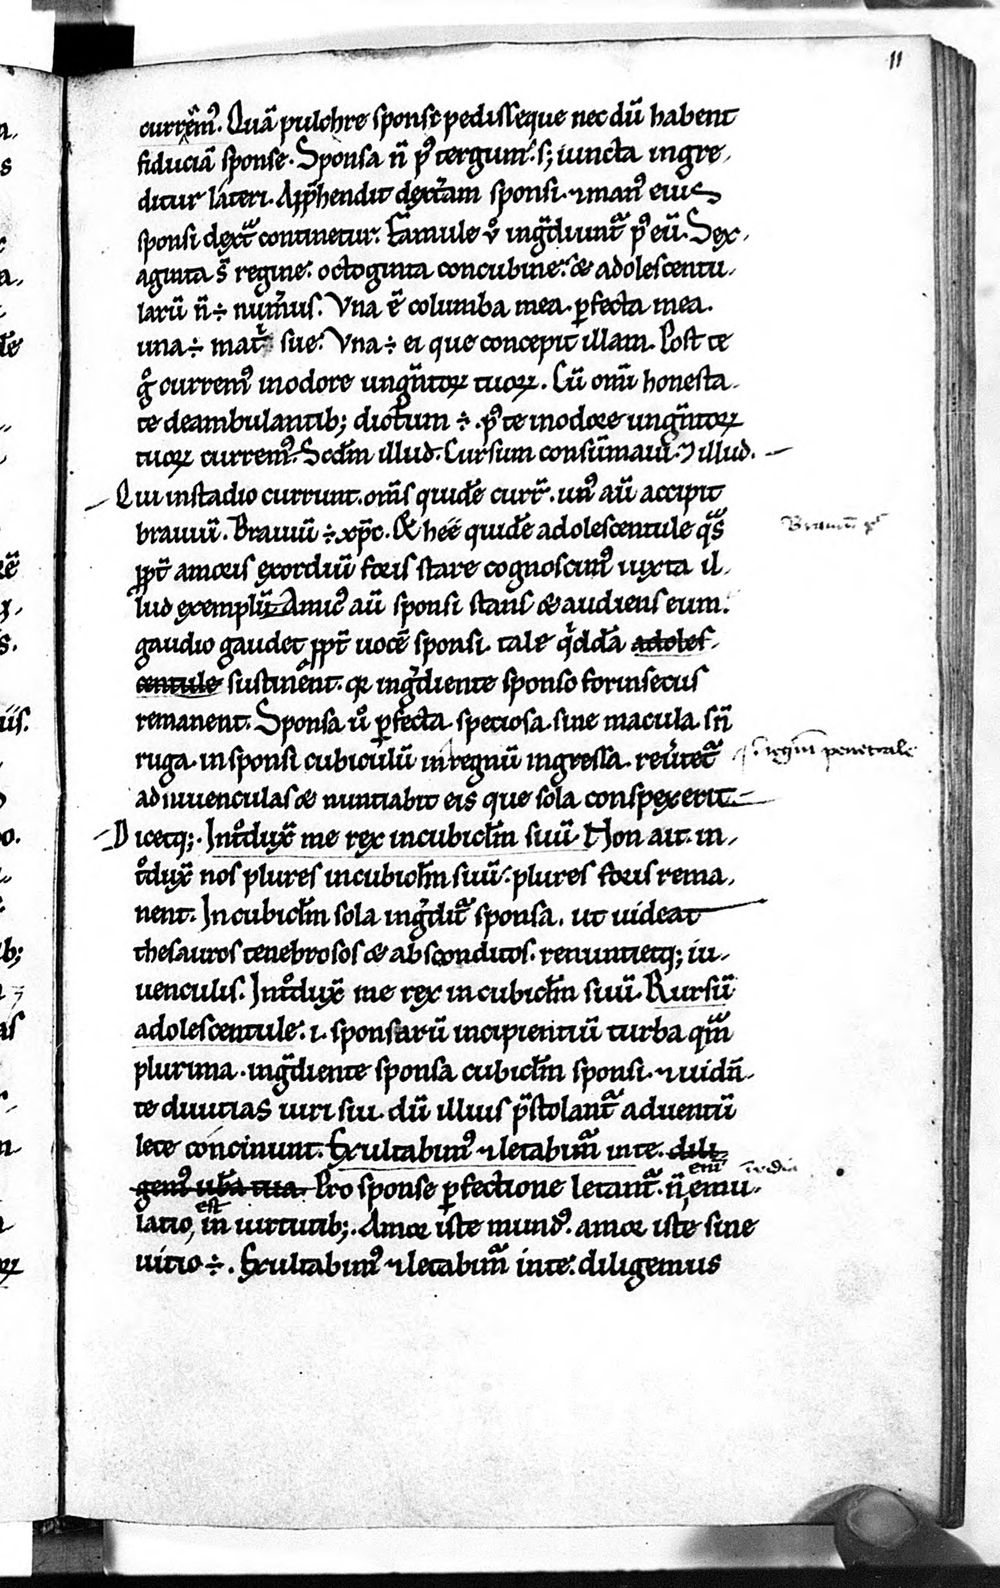 11
currem᷒. Quā pulchre sponse pedisseque nec dū habent
fiduciā sponse. Sponsa n̄ p᷒ tergum. s; iuncta ingre-
ditur lateri. App̄hendit dext̄am sponsi. ⁊ man᷒ eius
sponsi dext̄ continetur. Famule v̊ ing̃diunt᷑ p᷒ eū. Sex-
aginta s̄ regine. octoginta concubine. & adolescentu-
larū n̄ ÷ num̄us. Vna ē columba mea. ꝑfecta mea.
una ÷ mat̄ sue. Vna ÷ ei que concepit illam. Post te
g̊ currem᷒ in odore ungn̄toꝝ tuoꝝ. Cū om̄i honesta-
te deambulantib; dictum ÷. p᷒ te in odore ungn̄toꝝ
tuoꝝ currem᷒. Scd̄m illud. Cursum consūmaui. ⁊ illud.
Qui in stadio currunt. om̄s quidē curr̄. un᷒ aū accipit
brauiū. Brauiū ÷ xp̄c. & heé quidē adolescentule qᷓs
Brauiū
ꝓpt̄ amoris exordiū foris stare cognoscim᷒ iuxta il-
lud exemplū. Amic᷒ aū sponsi stans & audiens eum.
gaudio gaudet ꝓpt̄ uocē sponsi. tale qͥddā adoles-
centule sustinent. qꝛ ing̃diente sponso forinsecus
remanent. Sponsa ů ꝑfecta speciosa. sine macula. sn̄
ruga. in sponsi cubiculū in regnū ingressa. reu̓tet᷑
penetrale
ad iuuenculas & nuntiabit eis que sola conspexerit.
Dicetq;. Int̊dux̄ me rex in cubicl̄m suū. Non ait. in-
t̊dux̄ nos plures in cubicl̄m suū. plures foris rema-
nent. In cubicl̄m sola ing̃dit᷑ sponsa. ut uideat
thesauros tenebrosos & absconditos. renuntietq; iu-
uenculis. Int̊dux̄ me rex in cubicl̄m suū. Rursū
adolescentule. i. sponsarū incipientiū turba qᷓm
plurima. ing̃diente sponsa cubicl̄m sponsi. ⁊ uidn̄-
te diuitias uiri sui. dū illius p̄stolant᷑ aduentū
lete concinunt. Exultabim᷒ ⁊ letabim᷑ in te. dili-
gem᷒ ub̄a tua. Pro sponse ꝑfectione letant᷑. n̄ enī emu-
latio, est in uirtutib;. Amor iste mund᷒. amor iste sine
uitio ÷. Exultabim᷒ ⁊ letabim᷑ in te. diligemus